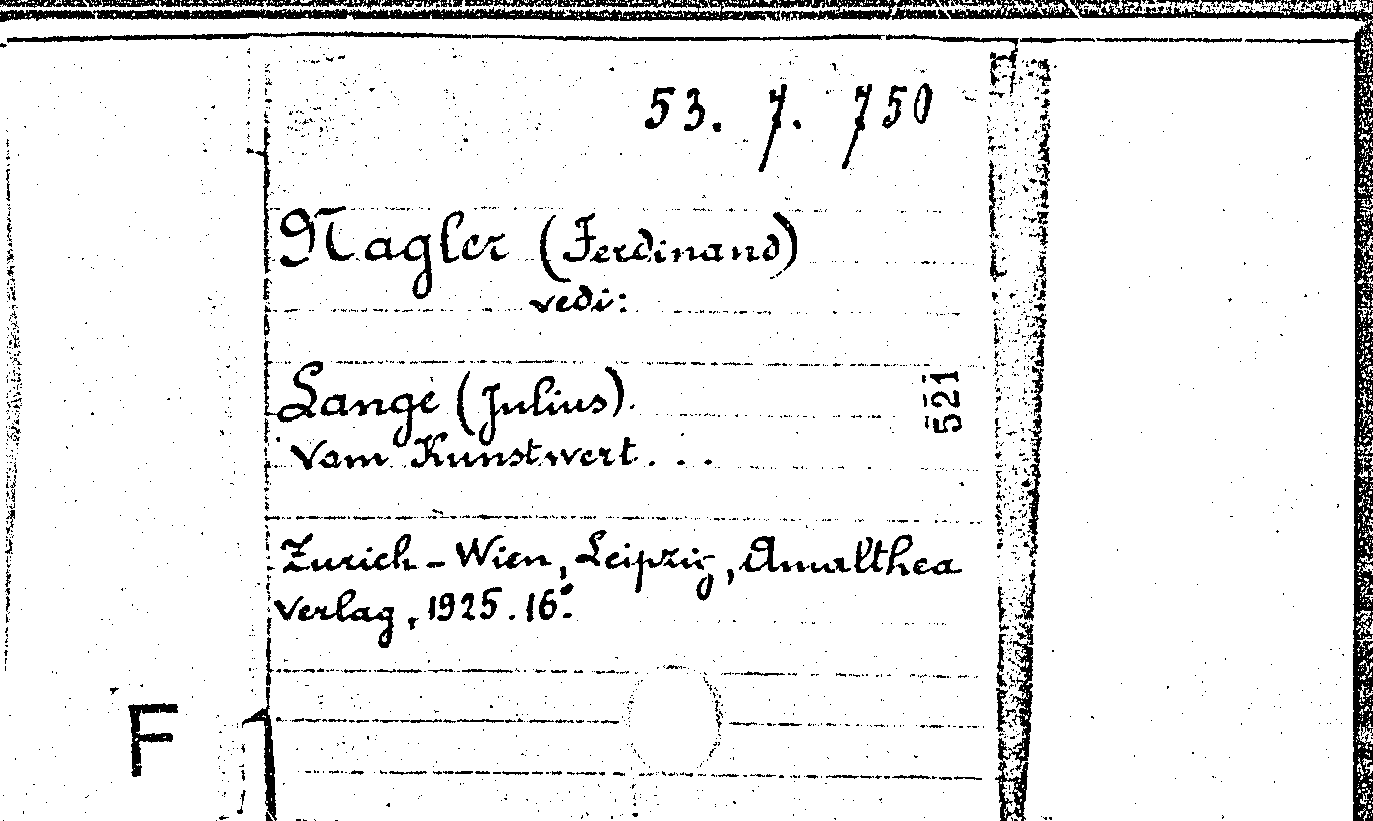 53. 7. 750
Nagler (Ferdinand)
vedi:
Lange (Julius).
Vom Kunstwert...
Zurich - Wien, Leipzig, Amalthea
Verlag, 1925. 16°.
521
F